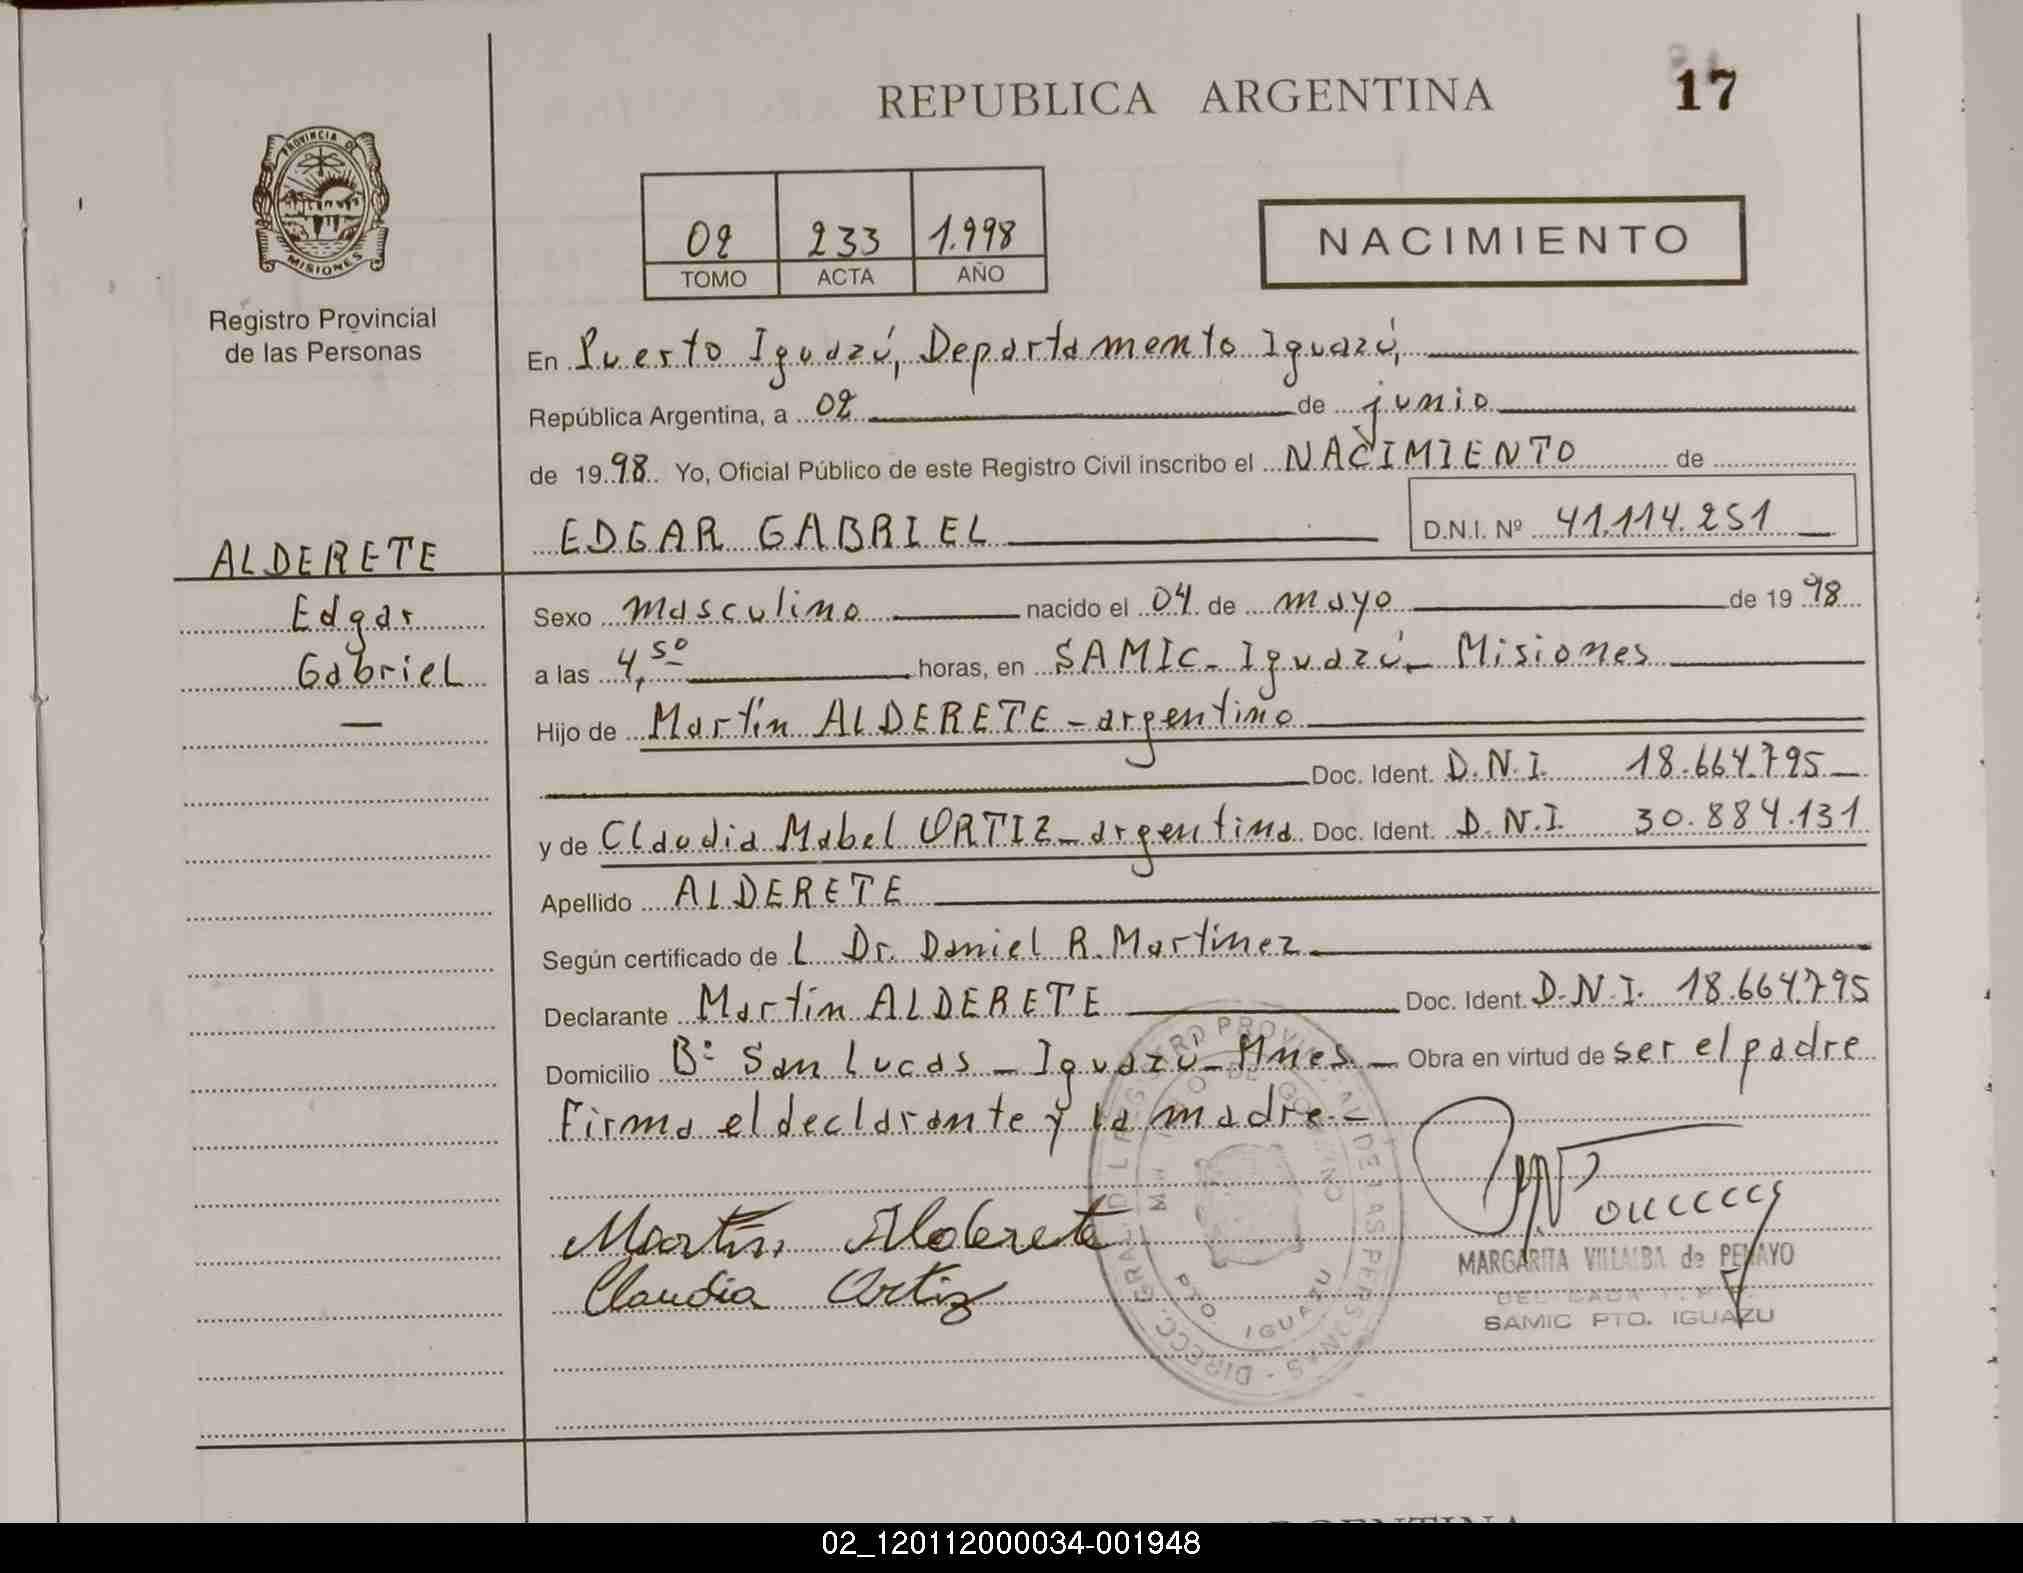 REPUBLICA ARGENTINA
17
PROVINCIA DE
MISIONES
Registro Provincial
de las Personas
02 233 1.998
TOMO ACTA AÑO
NACIMIENTO
En Puerto Iguazú, Departamento Iguazú,
República Argentina, a 02 de junio
de 1998 Yo, Oficial Público de este Registro Civil inscribo el NACIMIENTO de
EDGAR GABRIEL D.N.I. Nº 41.114.251
ALDERETE
Edgar
Gabriel
Sexo masculino nacido el 04 de mayo de 1998
a las 4,50 horas, en SAMIC- Iguazú- Misiones
Hijo de Martín ALDERETE - argentino
Doc. Ident. D.N.I. 18.664.795
y de Claudia Mabel ORTIZ - argentina Doc. Ident. D.N.I. 30.884.131
Apellido ALDERETE
Según certificado de L Dr. Daniel R. Martínez
Declarante Martín ALDERETE Doc. Ident. D.N.I. 18.664.795
Domicilio Bº San Lucas - Iguazú - Mnes - Obra en virtud de ser el padre
Firma el declarante y la madre.-
Martin Alderete
Claudia Ortiz
MARGARITA VILLALBA de PENAYO
SAMIC PTO. IGUAZU
DIRECC. GRAL. DEL REGISTRO PROVINCIAL DE LAS PERSONAS
PTO. IGUAZU
02_120112000034-001948